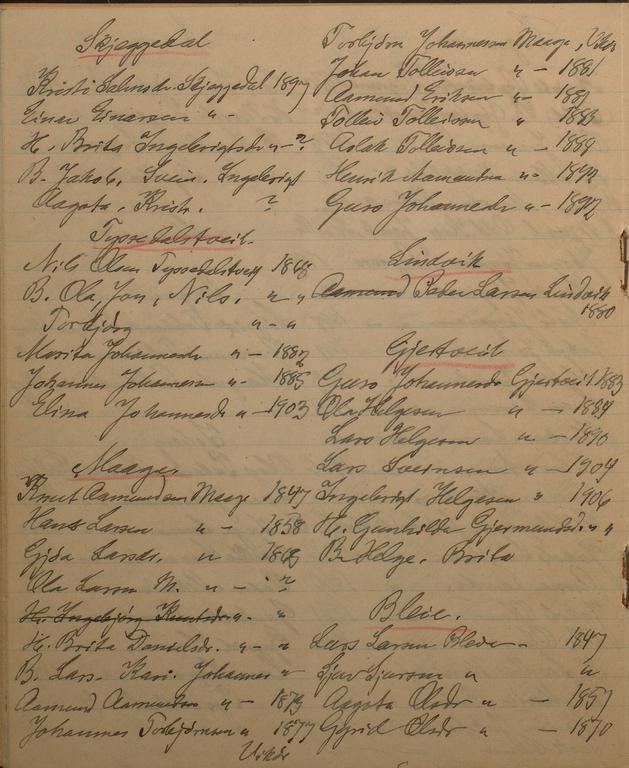 Skjeggedal
Kristi Larsdr. Skjeggedal 1897
Einar Einarsen " -
H. Brita Ingebrigtsdr " - ?
B. Jakob, Svein, Ingebrigt
Aagota, Kristi. ?
Tyssedalstveit.
Nils Olsen Tyssedalstveit 1868
B. Ola, Jon, Nils, " "
Torbjörg " - "
Marita Johannesdr " - 1882
Johannes Johannesen " - 1885
Elina Johannesdr " - 1903
Maage.
Knut Aamundsen Maage 1847
Hans Larsen " - 1858
Gjöa Larsdr. " 1863
Ola Larsen M. " - ?
H. Ingebjörg Knutsdr. " - "
H. Brita Danielsdr. " - "
B. Lars. Kari. Johannes "
Aamund Aamundsen " - 1873
Johannes Torbjörnsen " - 1877
Torbjörn Johannesen Maage,
Johan Tolleivsen " - 1881
Aamund Eriksen " - 1881
Tolleiv Tolleivsen " 1883
Aslak Tolleivsen " - 1889
Henrik Aamundsen " - 1892
Guro Johannesdr " - 1892
Lindvik
Aamund Peder Larsen Lindvik
1880
Gjertveit
Guro Johannesdr Gjertveit 1883
Ola Helgesen " - 1889
Lars Helgesen " - 1890
Lars Sveinsen " - 1904
Ingebrigt Helgesen " 1906
H. Gunhilda Gjermundsd. " "
B. Helge. Brita
Bleie.
Lars Larsen Bleie - 1847
Sjur Sjursen " "
Aagota Olsdr " - 1857
Sigrid Olsdr " - 1870